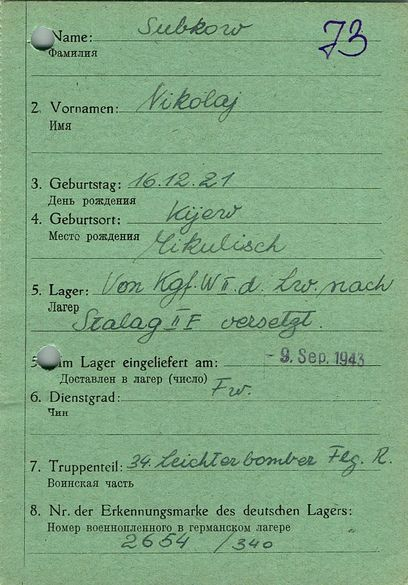 73
Name: Subkow
Фамилия
2. Vornamen: Nikolaj
Имя
3. Geburtstag: 16.12.21
День рождения
4. Geburtsort: Kijew
Место рождения
Mikulisch
5. Lager: Von Kgf. W II. d. Lw. nach
Лагер
Stalag II F versetzt.
Im Lager eingeliefert am: - 9. Sep. 1943
Доставлен в лагер (число)
6. Dienstgrad: Fw.
Чин
7. Truppenteil: 34. Leichterbomber Flg. R.
Воинская часть
8. Nr. der Erkennungsmarke des deutschen Lagers:
Номер военнопленного в германском лагере
2654 /340